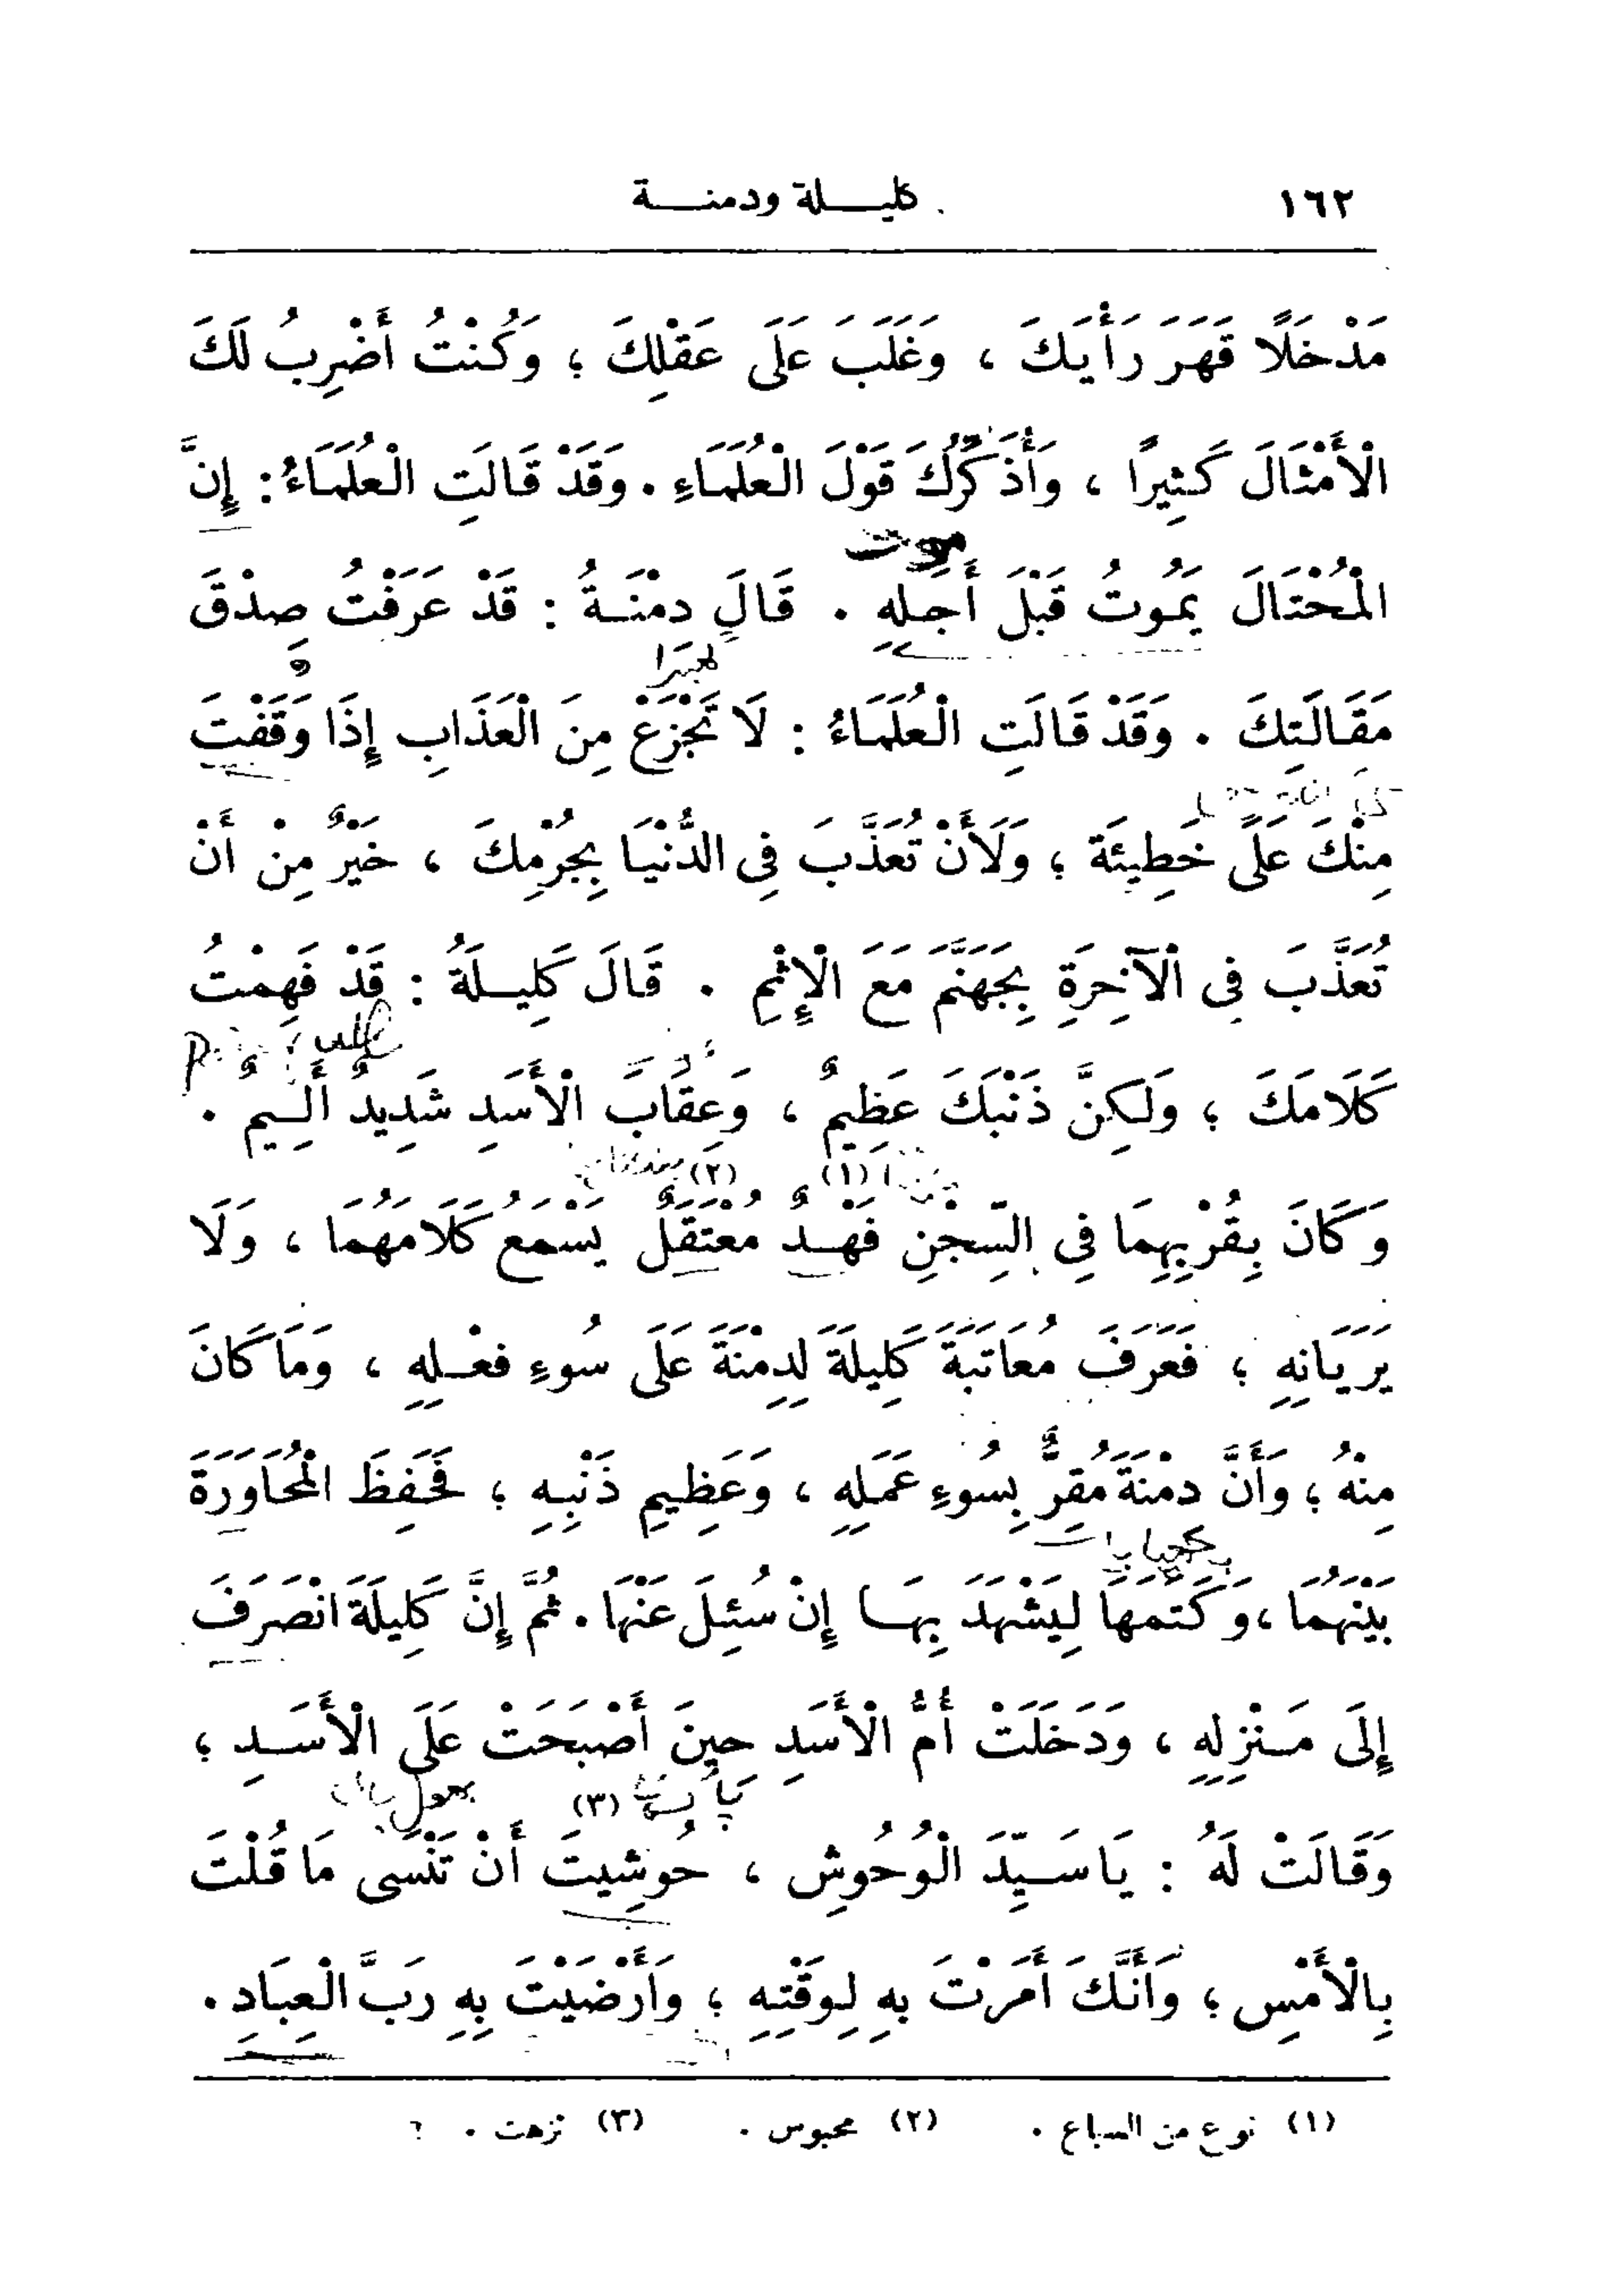 ١٦٢ كليلة ودمنة
مَدْخَلًا قَهَرَ رَأْيَكَ ، وَغَلَبَ عَلَى عَقْلِكَ ؛ وَكُنْتُ أَضْرِبُ لَكَ
الْأَمْثَالَ كَثِيرًا ، وَأُذَكِّرُكَ قَوْلَ الْعُلَمَاءِ . وَقَدْ قَالَتِ الْعُلَمَاءُ : إِنَّ
موت
الْمُحْتَالَ يَمُوتُ قَبْلَ أَجَلِهِ . قَالَ دِمْنَةُ : قَدْ عَرَفْتُ صِدْقَ
مَقَالَتِكَ . وَقَدْ قَالَتِ الْعُلَمَاءُ : لَا تَجْزَعْ مِنَ الْعَذَابِ إِذَا وَقَفْتَ
مِنْكَ عَلَى خَطِيئَةٍ ؛ وَلَأَنْ تُعَذَّبَ فِى الدُّنْيَا بِجُرْمِكَ ، خَيْرٌ مِنْ أَنْ
تُعَذَّبَ فِى الْآخِرَةِ بِجَهَنَّمَ مَعَ الْإِثْمِ . قَالَ كَلِيلَةُ : قَدْ فَهِمْتُ
كَلَامَكَ ؛ وَلَكِنَّ ذَنْبَكَ عَظِيمٌ ، وَعِقَابَ الْأَسَدِ شَدِيدٌ أَلِيمٌ .
وَكَانَ بِقُرْبِهِمَا فِى السِّجْنِ فَهْدٌ (١) مُعْتَقَلٌ (٢) يَسْمَعُ كَلَامَهُمَا ، وَلَا
يَرَيَانِهِ ؛ فَعَرَفَ مُعَاتَبَةَ كَلِيلَةَ لِدِمْنَةَ عَلَى سُوءِ فِعْلِهِ ، وَمَا كَانَ
مِنْهُ ؛ وَأَنَّ دِمْنَةَ مُقِرٌّ بِسُوءِ عَمَلِهِ ، وَعَظِيمِ ذَنْبِهِ ؛ فَحَفِظَ الْمُحَاوَرَةَ
بَيْنَهُمَا ، وَكَتَمَهَا لِيَشْهَدَ بِهَا إِنْ سُئِلَ عَنْهَا . ثُمَّ إِنَّ كَلِيلَةَ انْصَرَفَ
إِلَى مَنْزِلِهِ ، وَدَخَلَتْ أُمُّ الْأَسَدِ حِينَ أَصْبَحَتْ عَلَى الْأَسَدِ ؛
وَقَالَتْ لَهُ : يَا سَيِّدَ الْوُحُوشِ ، حُوشِيتَ (٣) أَنْ تَنْسَى مَا قُلْتَ
بِالْأَمْسِ ؛ وَأَنَّكَ أَمَرْتَ بِهِ لِوَقْتِهِ ؛ وَأَرْضَيْتَ بِهِ رَبَّ الْعِبَادِ .
(١) نوع من السباع . (٢) محبوس . (٣) نزهت .